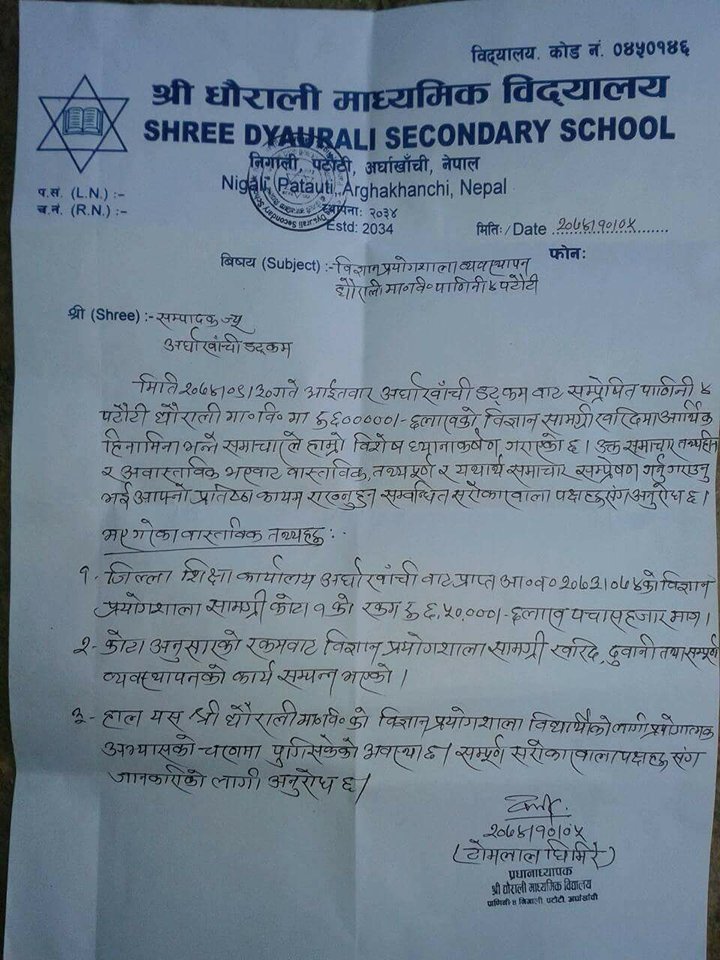 विद्यालय. कोड नं. ०४५०१४६
श्री धौराली माध्यमिक विद्यालय
SHREE DYAURALI SECONDARY SCHOOL
निगाली, पटौटी, अर्घाखाँची, नेपाल
Nigali, Patauti, Arghakhanchi, Nepal
स्थापना: २०३४
Estd: 2034
प.सं. (L.N.) :-
च.नं. (R.N.) :-
मिति: / Date २०७४।१०।०५
फोन:
बिषय (Subject) :- विज्ञान प्रयोगशाला व्यवस्थापन
धौराली मा॰वि॰ पाणिनी ४ पटौटी
श्री (Shree) :- सम्पादक ज्यू
अर्घाखाँची डट्कम
मिति २०७४।०९।३० गते आईतवार अर्घाखाँची डट्कम बाट सम्प्रेषित पाणिनी ४
पटौटी धौराली मा॰वि॰ मा रु ६०००००।- ६लाखको विज्ञान सामाग्री खरिदमा आर्थिक
हिनामिना भन्ने समाचारले हाम्रो विशेष ध्यानाकर्षण गराएको छ। उक्त समाचार तथ्यहिन
र अवास्तविक भएबाट वास्तविक, तथ्यपूर्ण र यथार्थ समाचार सम्प्रेषण गर्नु गराउनु
भई आफ्नो प्रतिष्ठा कायम राख्नुहुन सम्बन्धित सरोकारवाला पक्षहरु संग अनुरोध छ।
भए गरेका वास्तविक तथ्यहरु :-
१- जिल्ला शिक्षा कार्यालय अर्घाखाँची बाट प्राप्त आ॰व॰ २०७३।०७४ को विज्ञान
प्रयोगशाला सामग्री कोटा १ को रकम रु ६,५०,०००।- ६लाख पचास हजार मात्र।
२- कोटा अनुसारको रकमबाट विज्ञान प्रयोगशाला सामग्री खरिद, ढुवानी तथा सम्पूर्ण
व्यवस्थापनको कार्य सम्पन्न भएको।
३- हाल यस श्री धौराली मा॰वि॰ को विज्ञान प्रयोगशाला विद्यार्थीको लागी प्रयोगात्मक
अभ्यासको चरणमा पुगिसकेको अवस्था छ। सम्पूर्ण सरोकारवाला पक्षहरु संग
जानकारीको लागी अनुरोध छ।
२०७४।१०।०५
(टोमलाल घिमिरे)
प्रधानाध्यापक
श्री धौराली माध्यमिक विद्यालय
पाणिनी ४ निगाली, पटौटी, अर्घाखाँची